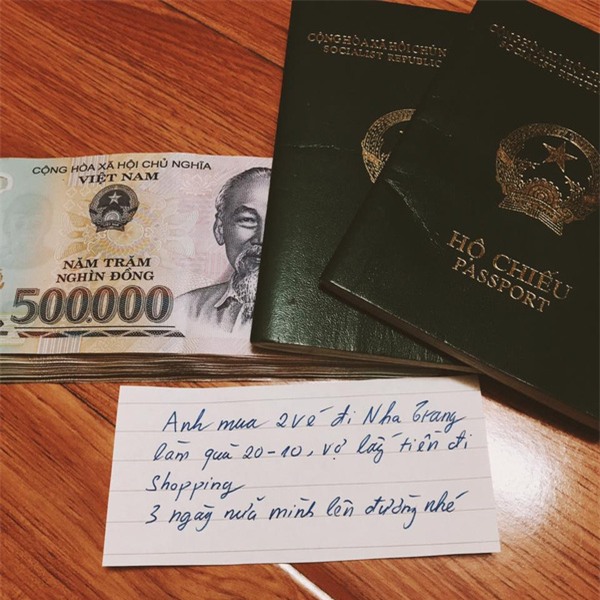 CỘNG HÒA XÃ HỘI CHỦ
SOCIALIST REPUBLIC
HỘ CHIẾU
PASSPORT
CỘNG HÒA XÃ HỘI CHỦ NGHĨA
VIỆT NAM
NĂM TRĂM
NGHÌN ĐỒNG
500.000
Anh mua 2 vé đi Nha Trang
làm quà 20-10, vợ lấy tiền đi
Shopping
3 ngày nữa mình lên đường nhé